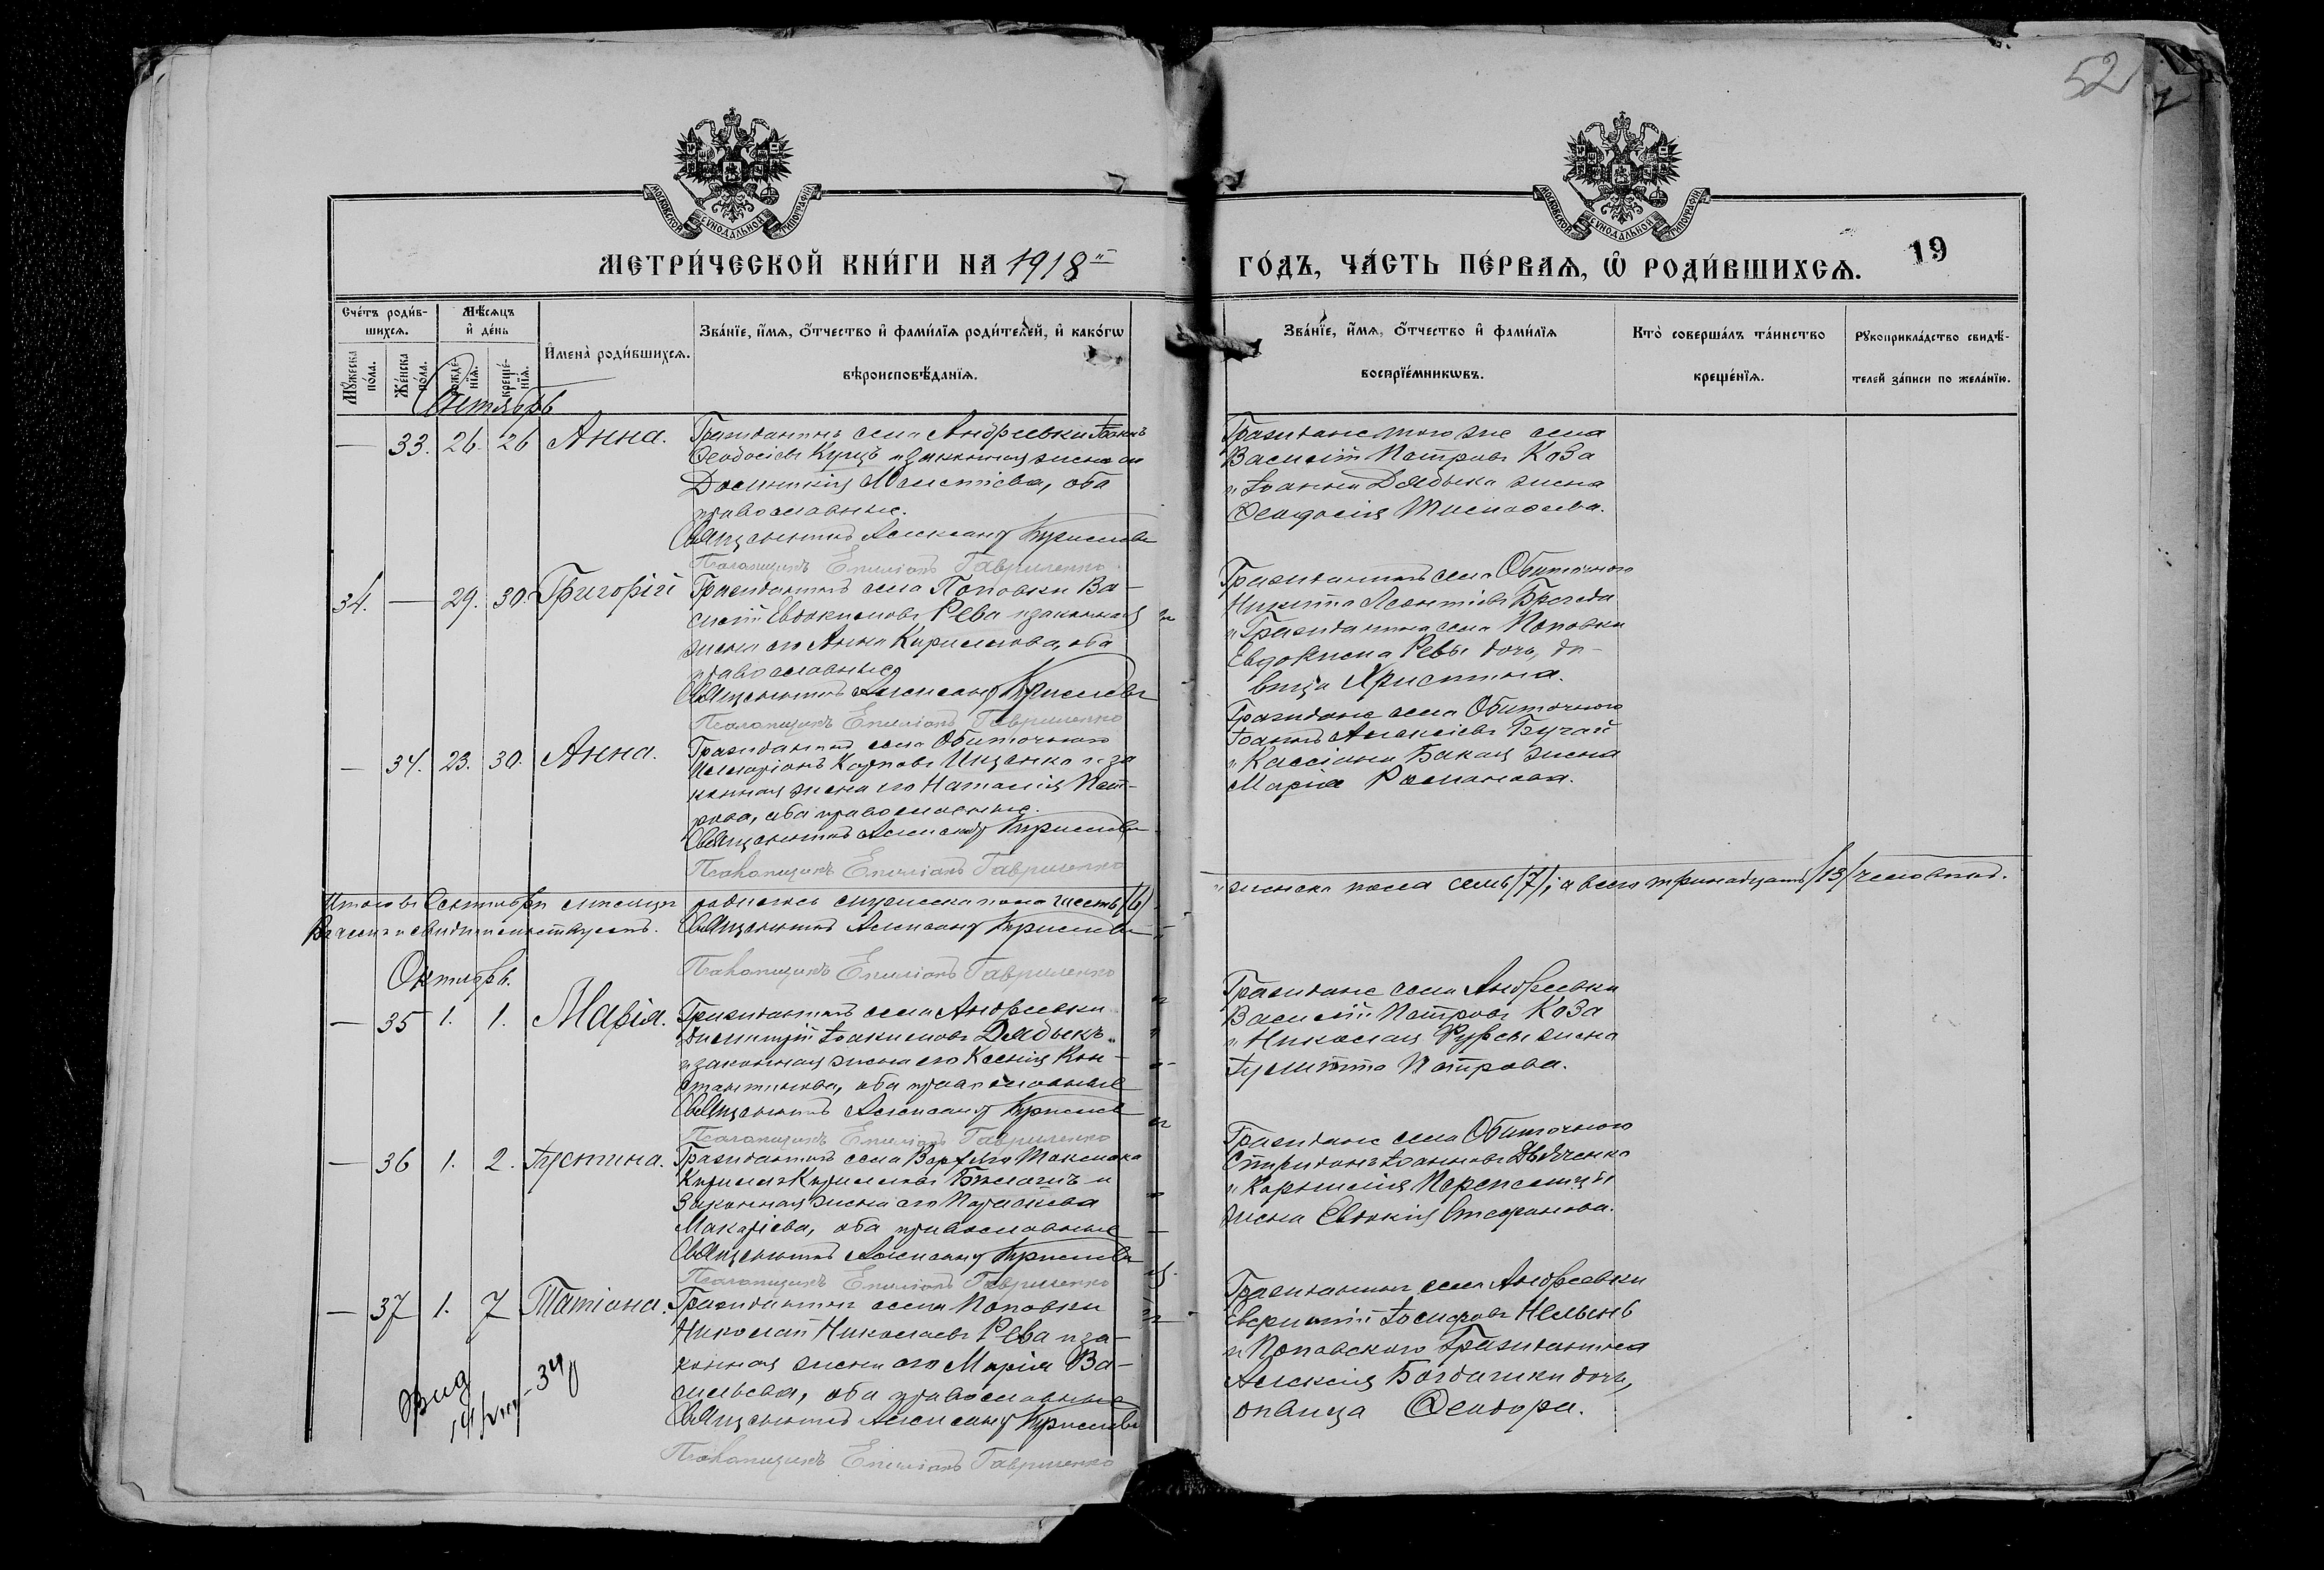 52
МОСКОВСКОЙ СѴНОДАЛЬНОЙ ТИПОГРАФІИ
МОСКОВСКОЙ СѴНОДАЛЬНОЙ ТИПОГРАФІИ
МЕТРИ́ЧЕСКОЙ КНИ́ГИ НА 1918й
ГО́ДЪ, ЧА́СТЬ ПЕ́РВАѦ, Ѡ҆ РОДИ́ВШИХСѦ.
19
Сче́тъ роди́в-
шихсѧ.
Мѣ́сѧцъ
и҆ де́нь
Мꙋ́жеска по́ла.
Же́нска по́ла.
рожде́-нїѧ.
креще́-нїѧ.
И҆мена̀ роди́вшихсѧ.
Зва́нїе, и҆́мѧ, ѻ҆́тчество и҆ фами́лїѧ роди́телей, и҆ како́гѡ
вѣроисповѣ́данїѧ.
Зва́нїе, и҆́мѧ, ѻ҆́тчество и҆ фами́лїѧ
воспрїе́мникѡвъ.
Кто̀ соверша́лъ та́инство
креще́нїѧ.
Рꙋкоприкла́дство свидѣ́-
телей за́писи по жела́нїю.
— 33. 26. 26 Анна.
Гражданинъ села Андреевки Іоаннъ
Ѳеодосіевъ Куцъ и законная жена его
Мелетіева, оба
православные.
Священникъ Александръ
Псаломщикъ Емиліанъ Гавриленко
Граждане того же села
Василій Петровъ Коза
и Іоанна Дядыка жена
Ѳеодосія Тимоѳеева.
34. — 29. 30. Григорій
Гражданинъ села Поповки Ва-
силій Евдокимовъ Рева и законная
жена его Анна Кириллова, оба
православные
Священникъ Александръ
Псаломщикъ Емиліанъ Гавриленко
Гражданинъ села Обиточнаго
Никита Леонтіевъ
и Гражданина села Поповки
Евдокима Ревы дочь, дѣ-
вица Христина.
— 34. 23. 30. Анна.
Гражданинъ села Обиточнаго
Иларіонъ Карповъ Ищенко и за
конная жена его Наталія Пет-
рова, оба православные.
Священникъ Александръ
Псаломщикъ Емиліанъ Гавриленко
Граждане села Обиточнаго
Іоаннъ Алексіевъ Бугай
и Кассіана Бакая жена
Марія Романова.
Итого въ Сентябрѣ мѣсяцѣ родилось мужеска пола шесть /6/
женска пола семь /7/; а всего тринадцать /13/ человѣкъ.
В чемъ и свидѣтельствуемъ. Священникъ Александръ
Псаломщикъ Емиліанъ Гавриленко
Октябрь.
— 35 1. 1. Марія.
Гражданинъ села Андреевки
Димитрій Іоакимовъ Дядыкъ
и законная жена его Ксенія Кон-
стантинова, оба православные
Священникъ Александръ
Псаломщикъ Емиліанъ Гавриленко
Граждане села Андреевки
Василій Петровъ Коза
и Николая жена
Іулитта Петрова.
— 36 1. 2. Іустина.
Гражданинъ села Верхняго Токмака
Кириллъ Кирилловъ и
Законная жена его Параскева
Макаріева, оба православные
Священникъ Александръ
Псаломщикъ Емиліанъ Гавриленко
Граждане села Обиточнаго
Спиридонъ Іоанновъ
и Корнилія
жена Евдокія Стефанова.
— 37 1. 7 Татіана.
Гражданинъ села Поповки
Николай Николаевъ Рева и за-
конная жена его Марія Ва-
сильева, оба православные
Священникъ Александръ
Псаломщикъ Емиліанъ Гавриленко
Гражданинъ села Андреевки
Іосифовъ
и Поповскаго Гражданина
Алексія дочь,
дѣвица Ѳеодора.